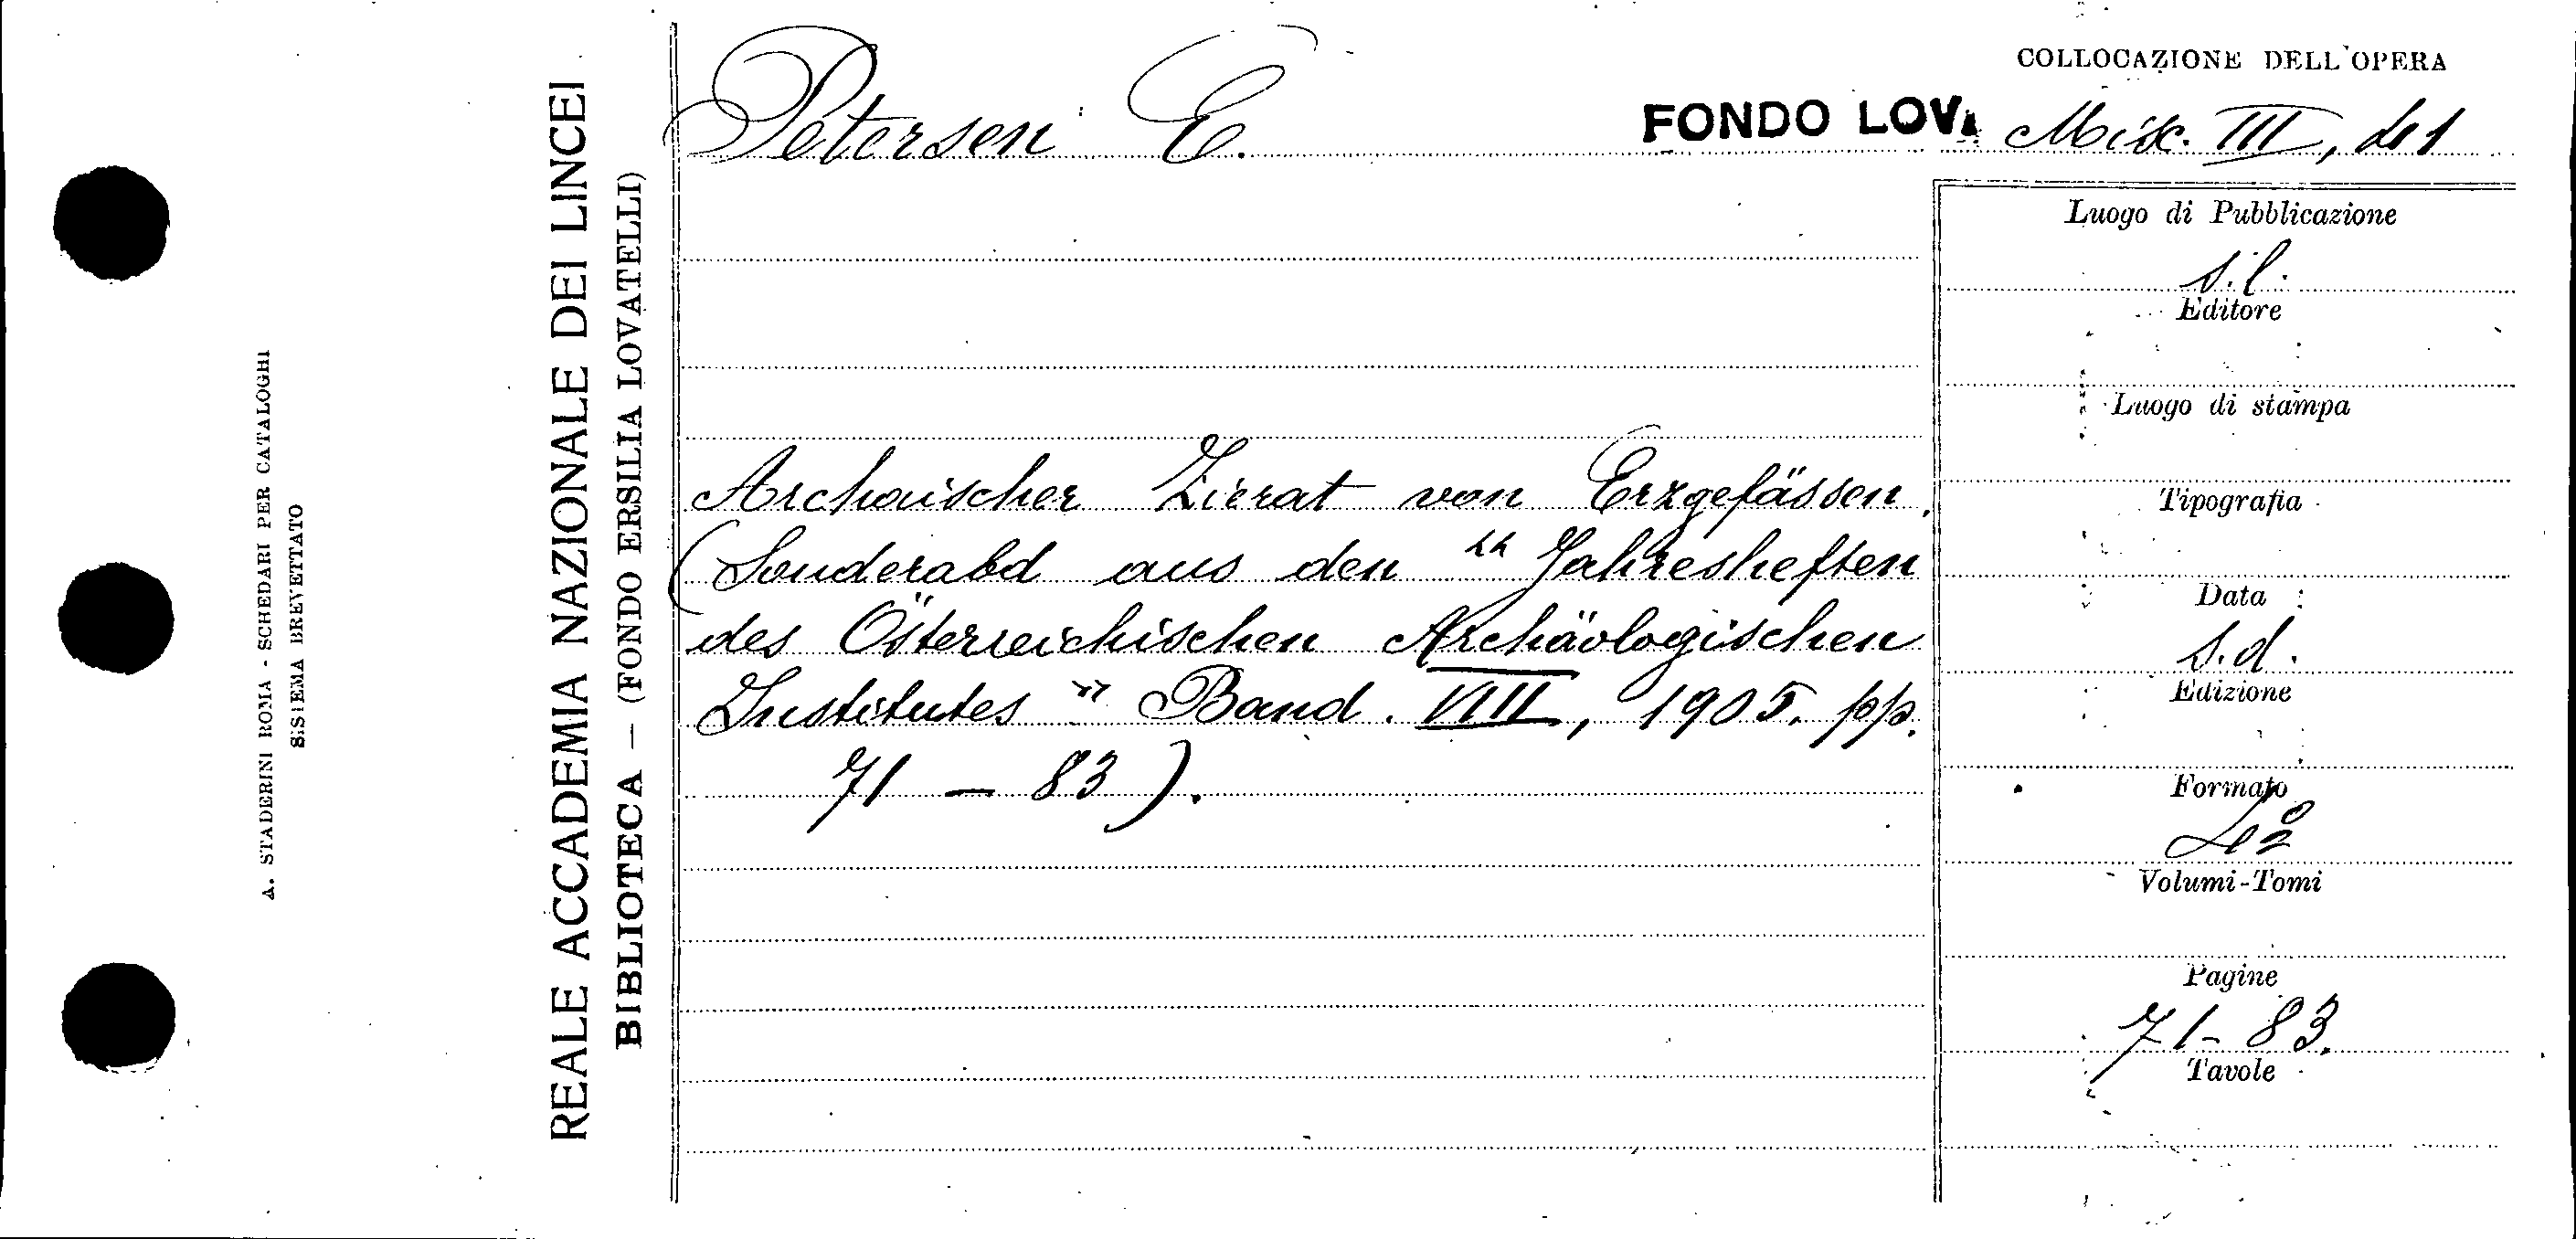 A. STADERINI ROMA - SCHEDARI PER CATALOGHI
SISTEMA BREVETTATO
REALE ACCADEMIA NAZIONALE DEI LINCEI
BIBLIOTECA — (FONDO ERSILIA LOVATELLI)
Petersen E.
COLLOCAZIONE DELL'OPERA
FONDO LOV. Misc. III, 41
Archaischer Zierat von Erzgefässen.
(Sonderabd aus den "Jahresheften
des Österreichischen Archäologischen
Institutes" Band. VIII, 1905. pp.
71 — 83).
Luogo di Pubblicazione
s.l.
Editore
Luogo di stampa
Tipografia
Data
s.d.
Edizione
Formato
4º
Volumi-Tomi
Pagine
71-83.
Tavole